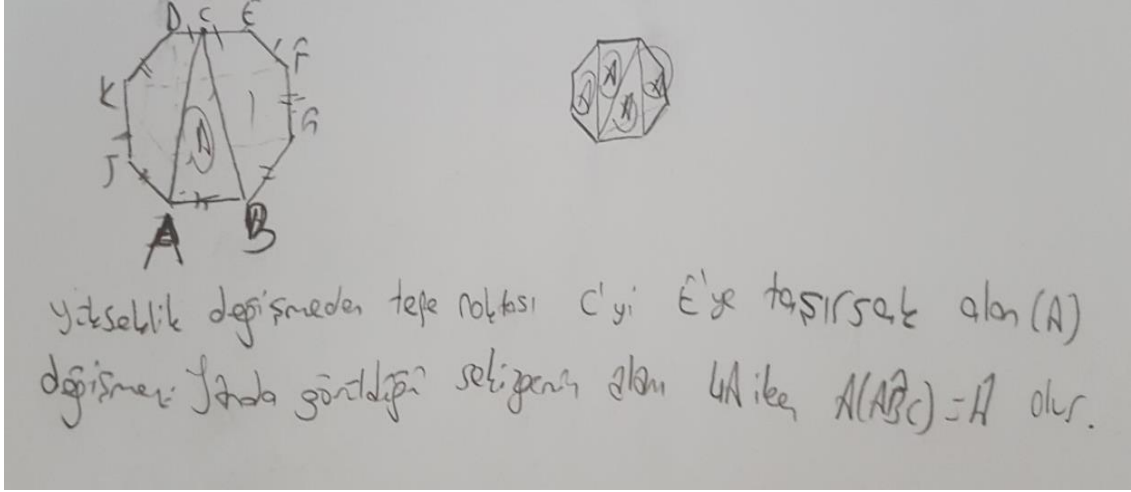 D C E
K F
J G
A
A B
A A A A
Yükseklik değişmeden tepe noktası C'yi E'ye taşırsak alan (A)
değişmez. Yanda görüldüğü sekizgenin alanı 4A iken A(ABC) = A olur.